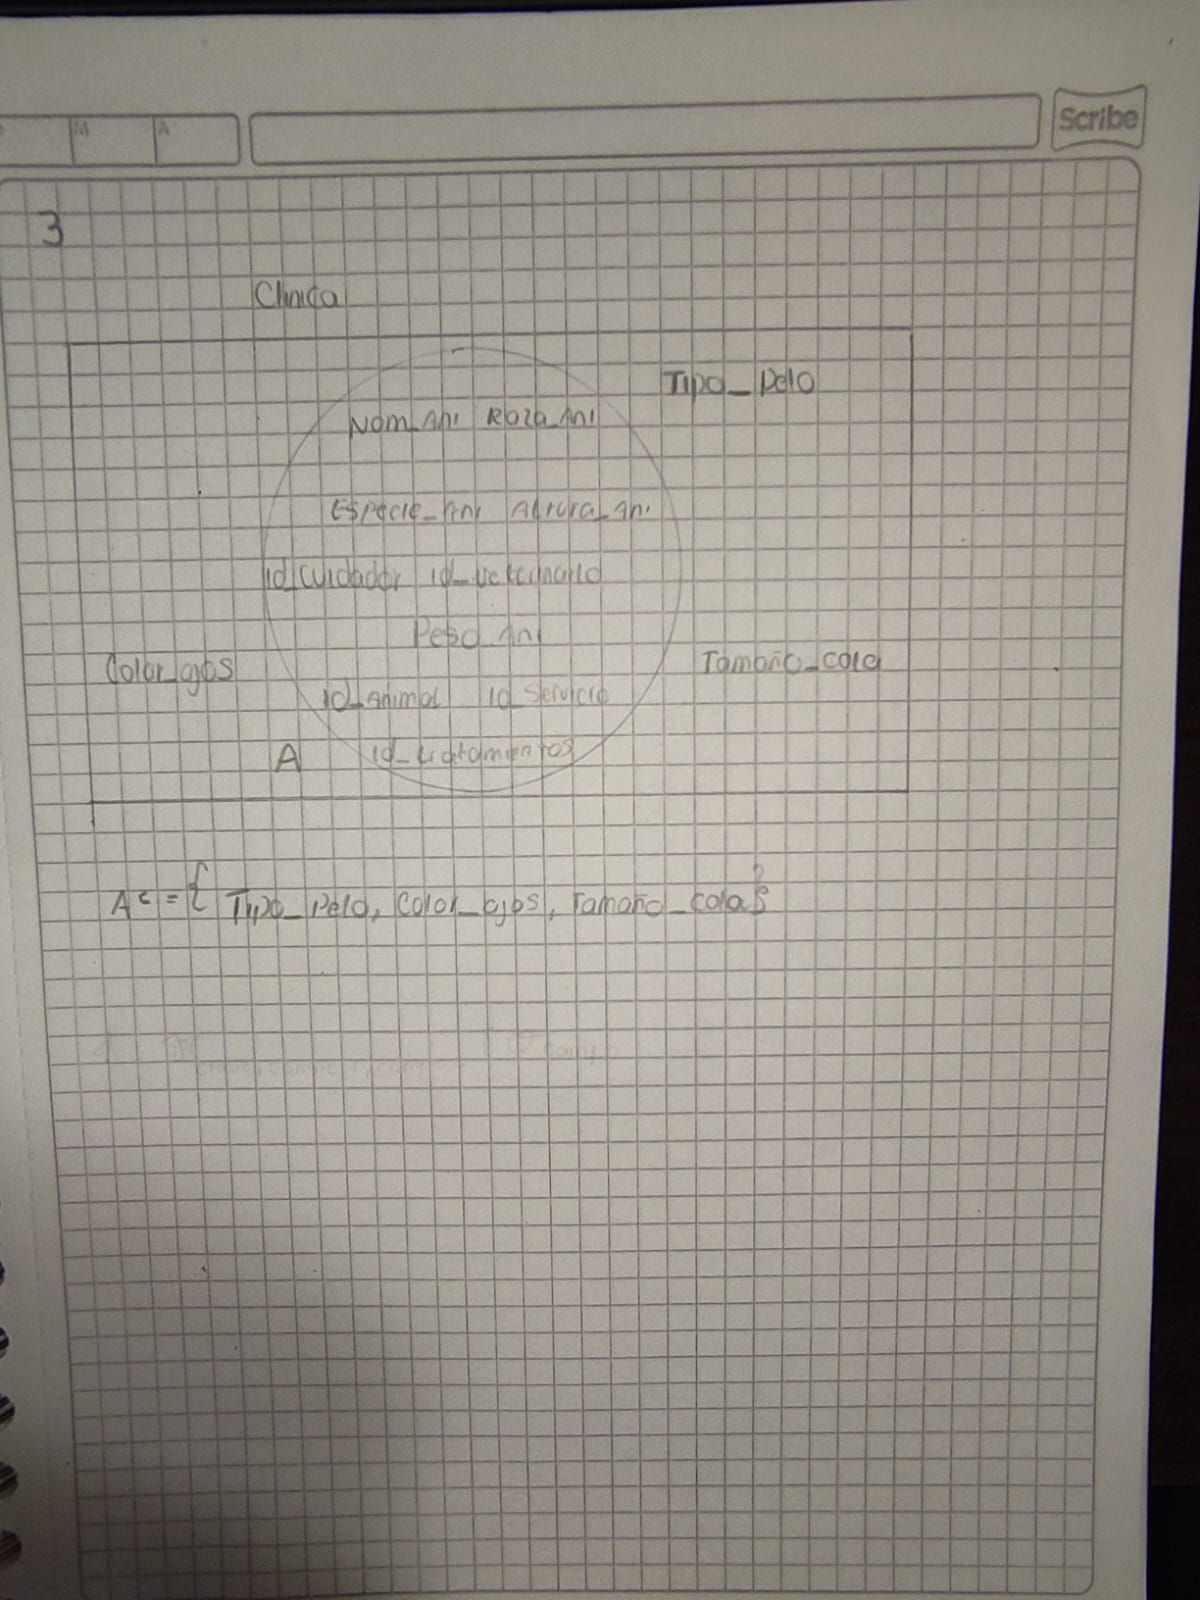 M A
Scribe
3
Clinica
Tipo_Pelo
Nom_Ani Raza_Ani
Especie_Ani Altura_Ani
id_Cuidador id_veterinario
Peso_Ani
Color_ojos Tamaño_cola
id_animal id_Servicio
A id_tratamientos
Aᶜ = { Tipo_Pelo, Color_ojos, Tamaño_cola}